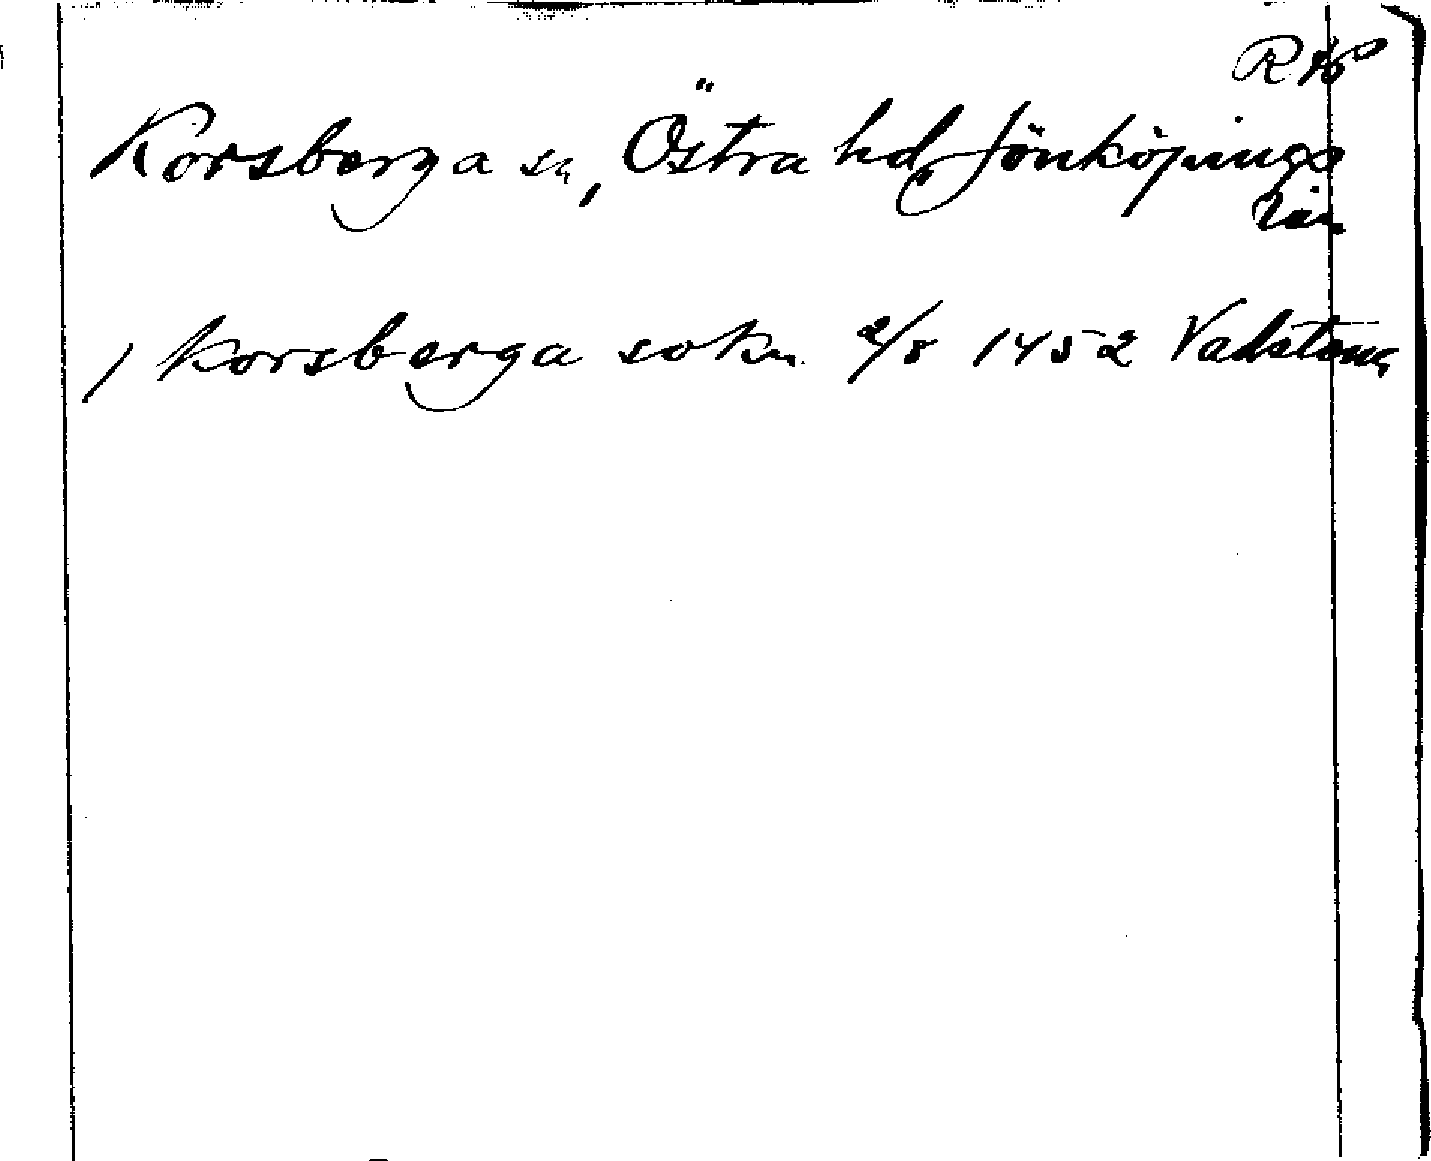 Korsberga sn, Östra hd, Jönköpings
län
j korsberga sokn 2/8 1452 Vadstena